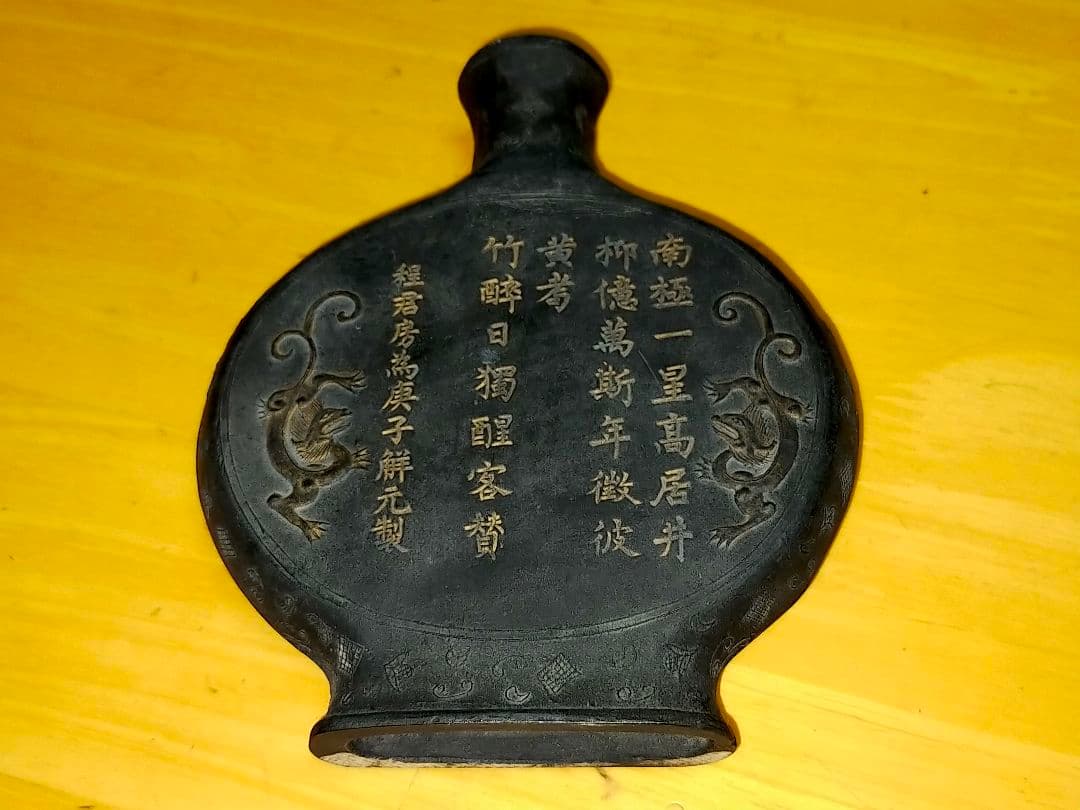 南極一星高居井
抑億萬斯年徵彼
黄耇
竹醉日獨醒客贊
程君房為庚子解元製